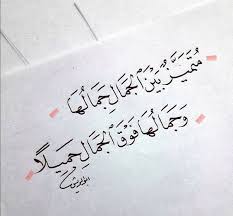 مُتَمَيِّزٌ بَيْنَ الْجَمَالِ جَمَالُهَا
وَجَمَالُهَا فَوْقَ الْجَمَالِ جَمِيلًا